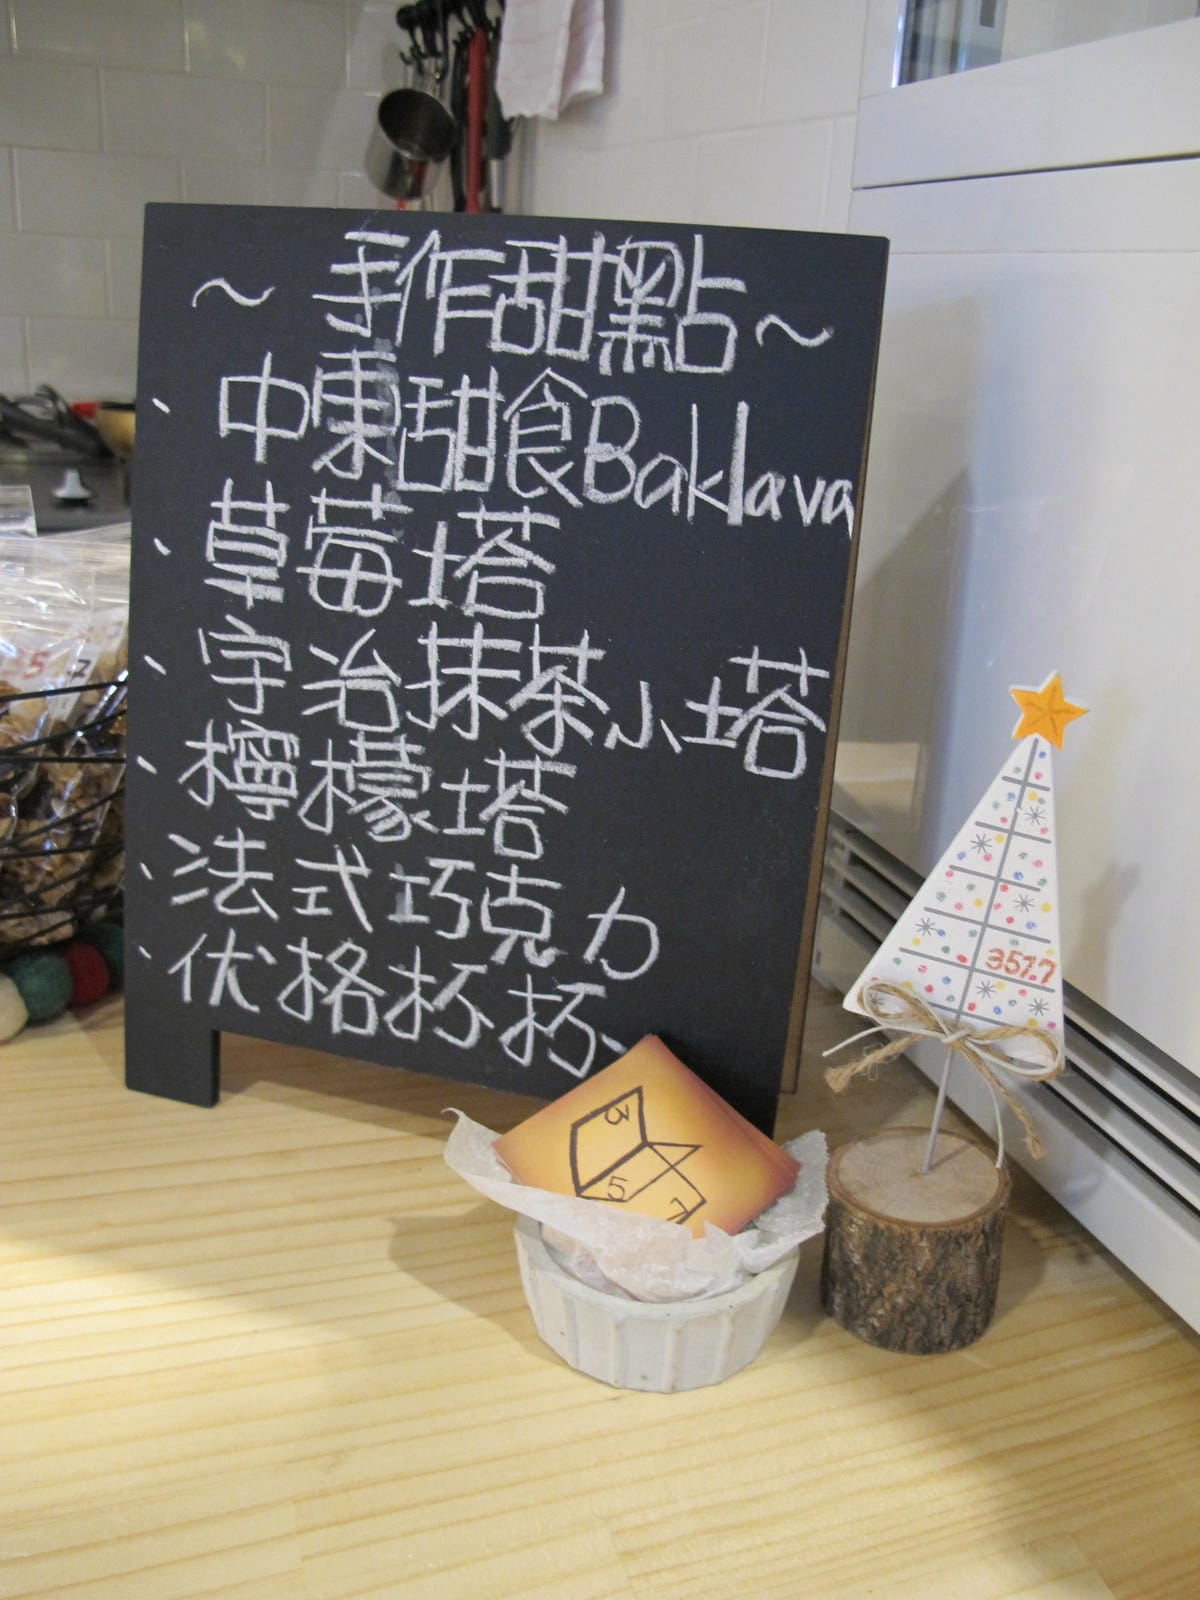 ~ 手作甜點 ~
、中東甜食Baklava
、草莓塔
、宇治抹茶小塔
、檸檬塔
、法式巧克力
、优格杯杯~
3577
3
5
7
5
7